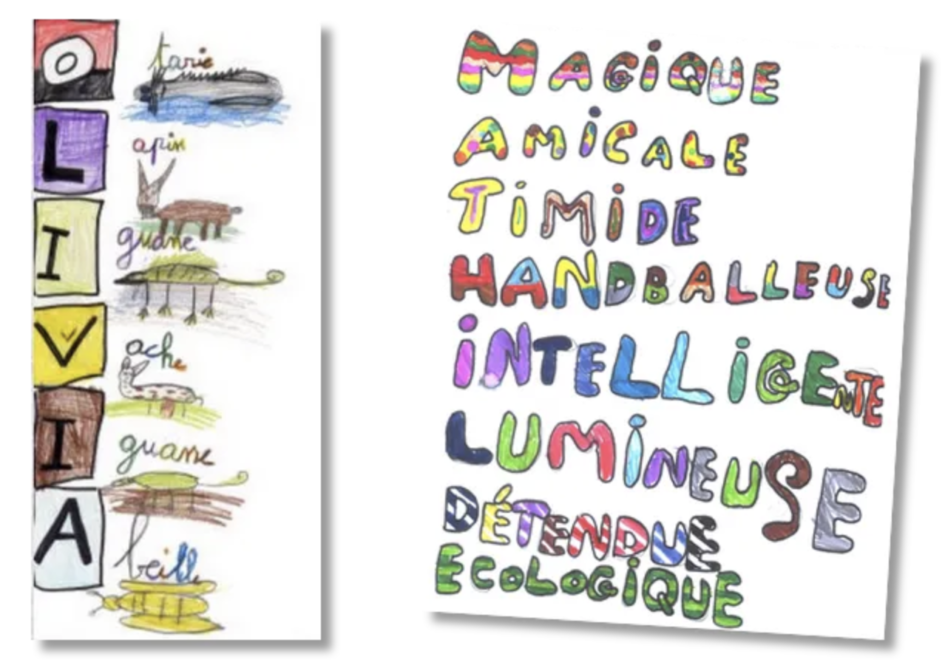 Otarie
Lapin
Iguane
Vache
Iguane
Abeille
MAGiQUE
AMiCALE
TiMiDE
HANDBALLEUSE
iNTELLiGENTE
LUMiNEUSE
DÉTENDUE
ECOLOGiQUE